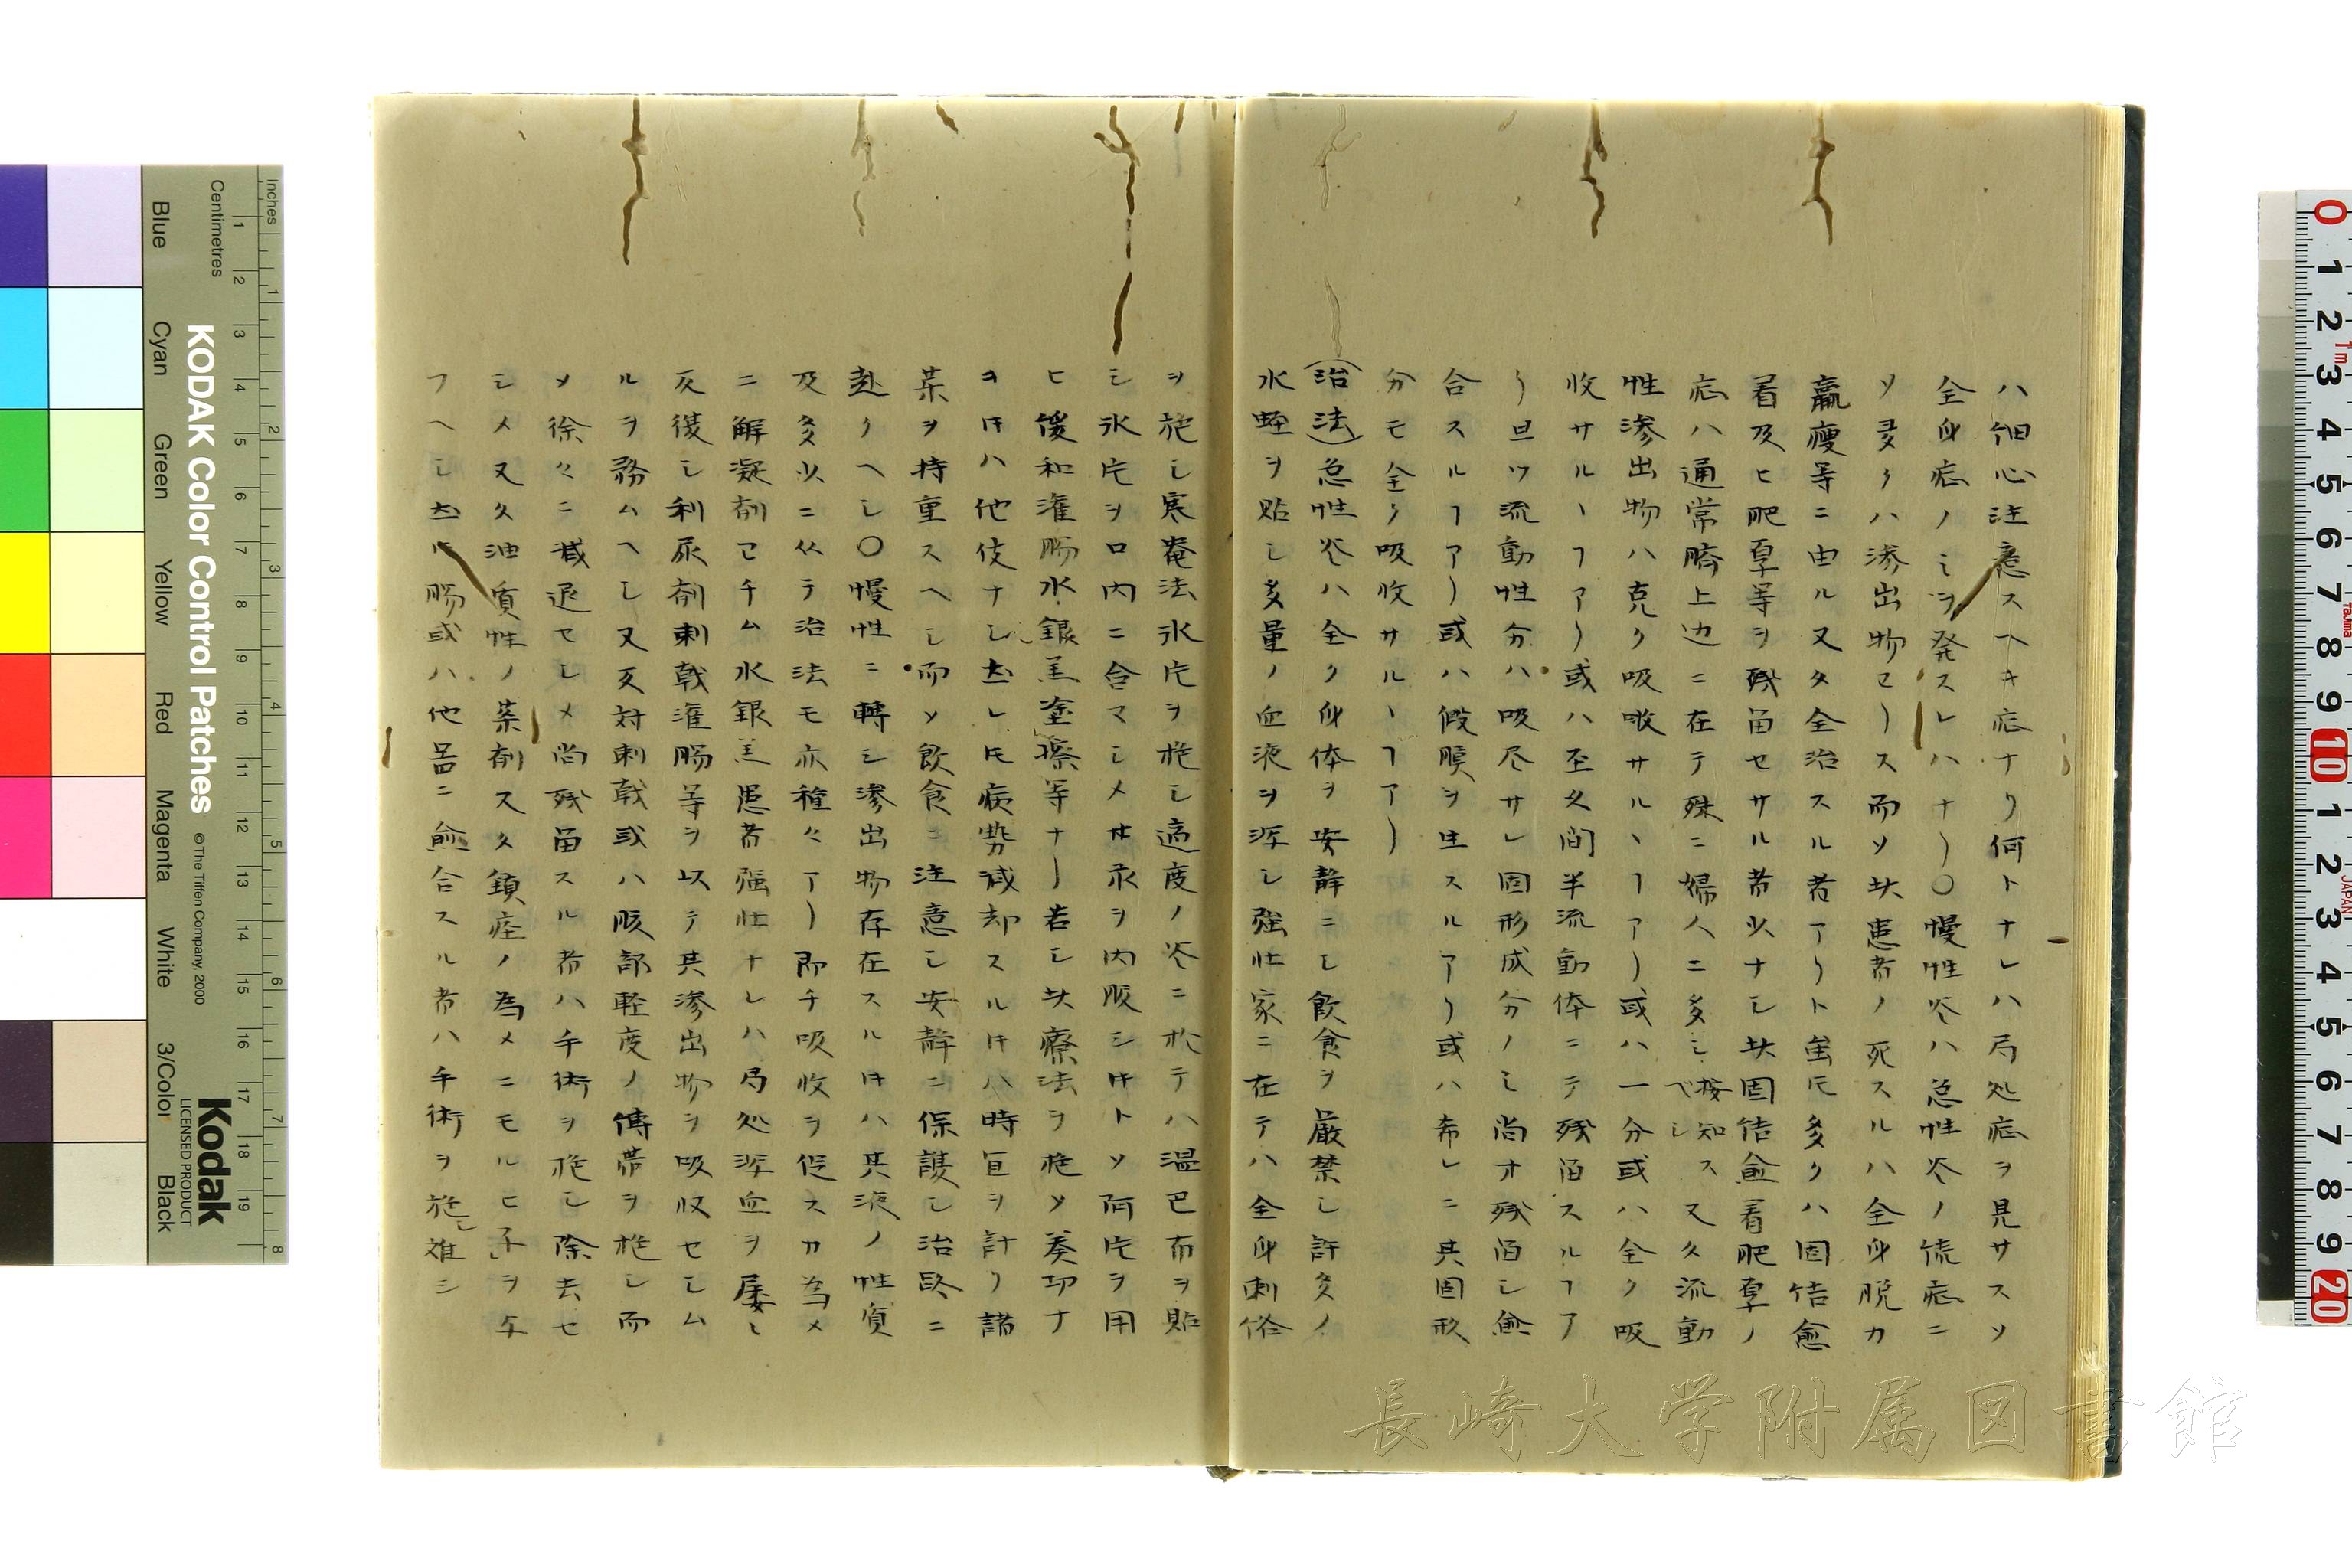 ハ細心注意スヘキ症ナリ何トナレハ局処症ヲ見サスソ
全身症ノミヲ発スレハナリ〇慢性炎ハ急性炎ノ続症ニ
ソ多クハ滲出物マリス而ソ此患者ノ死スルハ全身脱力
羸痩等ニ由ル又タ全治スル者アリト雖モ多クハ固結愈
着及ヒ肥厚等ヲ残留セサル者少ナシ此固結愈着肥厚ノ
症ハ通常臍上辺ニ在テ殊ニ婦人ニ多シ按知スヘシ又久流動
性滲出物ハ克ク吸收サルヽヿアリ或ハ一分或ハ全ク吸
收サルヽヿアリ或ハ至久間半流動体ニテ残留スルヿア
リ且ツ流動性分ハ吸尽サレ固形成分ノミ尚オ残留シ愈
合スルヿアリ或ハ假膜ヲ生スルアリ或ハ希レニ其固形
分モ全ク吸收サルヽヿアリ
(治法)急性炎ハ全ク身体ヲ安静ニシ飲食ヲ厳禁シ許多ノ
水蛭ヲ貼シ多量ノ血液ヲ瀉シ強壮家ニ在テハ全身刺絡
ヲ施シ寒罨法氷片ヲ施シ適度ノ炎ニ於テハ温巴布ヲ貼
シ氷片ヲ口内ニ含マシメ甘汞ヲ内服シ件トソ阿片ヲ用
ヒ緩和潅腸水銀羔塗擦等ナリ若シ此療法ヲ施ソ奏功ナ
キ時ハ他伎ナシ然レ𪜈病勢減却スル時ハ時宜ヲ計リ諸
薬ヲ持重スヘシ而ソ飲食ニ注意シ安静ニ保護シ治路ニ
赴クヘシ〇慢性ニ轉シ滲出物存在スル時ハ其液ノ性質
及多少ニ从テ治法モ亦種々アリ即チ吸收ヲ促スカ為メ
ニ解凝剤即チム水銀羔患者強壮ナレハ局処瀉血ヲ屡々
反復シ利尿剤刺戟潅腸等ヲ以テ其滲出物ヲ吸収セシム
ルヲ務ムヘシ又反対刺戟或ハ腹部軽度ノ傳帯ヲ施シ而
ソ徐々ニ減退セシメ尚残留スル者ハ手術ヲ施シ除去セ
シメ又久油質性ノ薬剤又久鎮座ノ為メニモルヒ子ヲ与
フヘシ然𪜈腸或ハ他器ニ愈合スル者ハ手術ヲ施シ難シ
KODAK Color Control Patches
© The Tiffen Company, 2000
Kodak
LICENSED PRODUCT
Inches
Centimetres
Blue
Cyan
Green
Yellow
Red
Magenta
White
3/Color
Black
長崎大学附属図書館